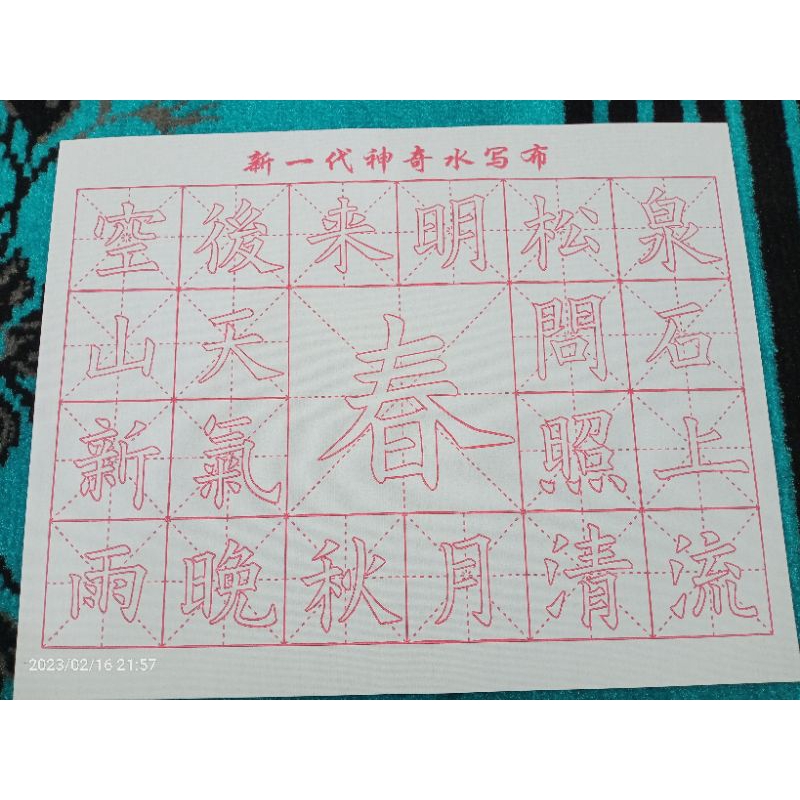 新一代神奇水写布
空山新雨
後天氣晚
来秋
明月
松間照清
泉石上流
春
2023/02/16 21:57